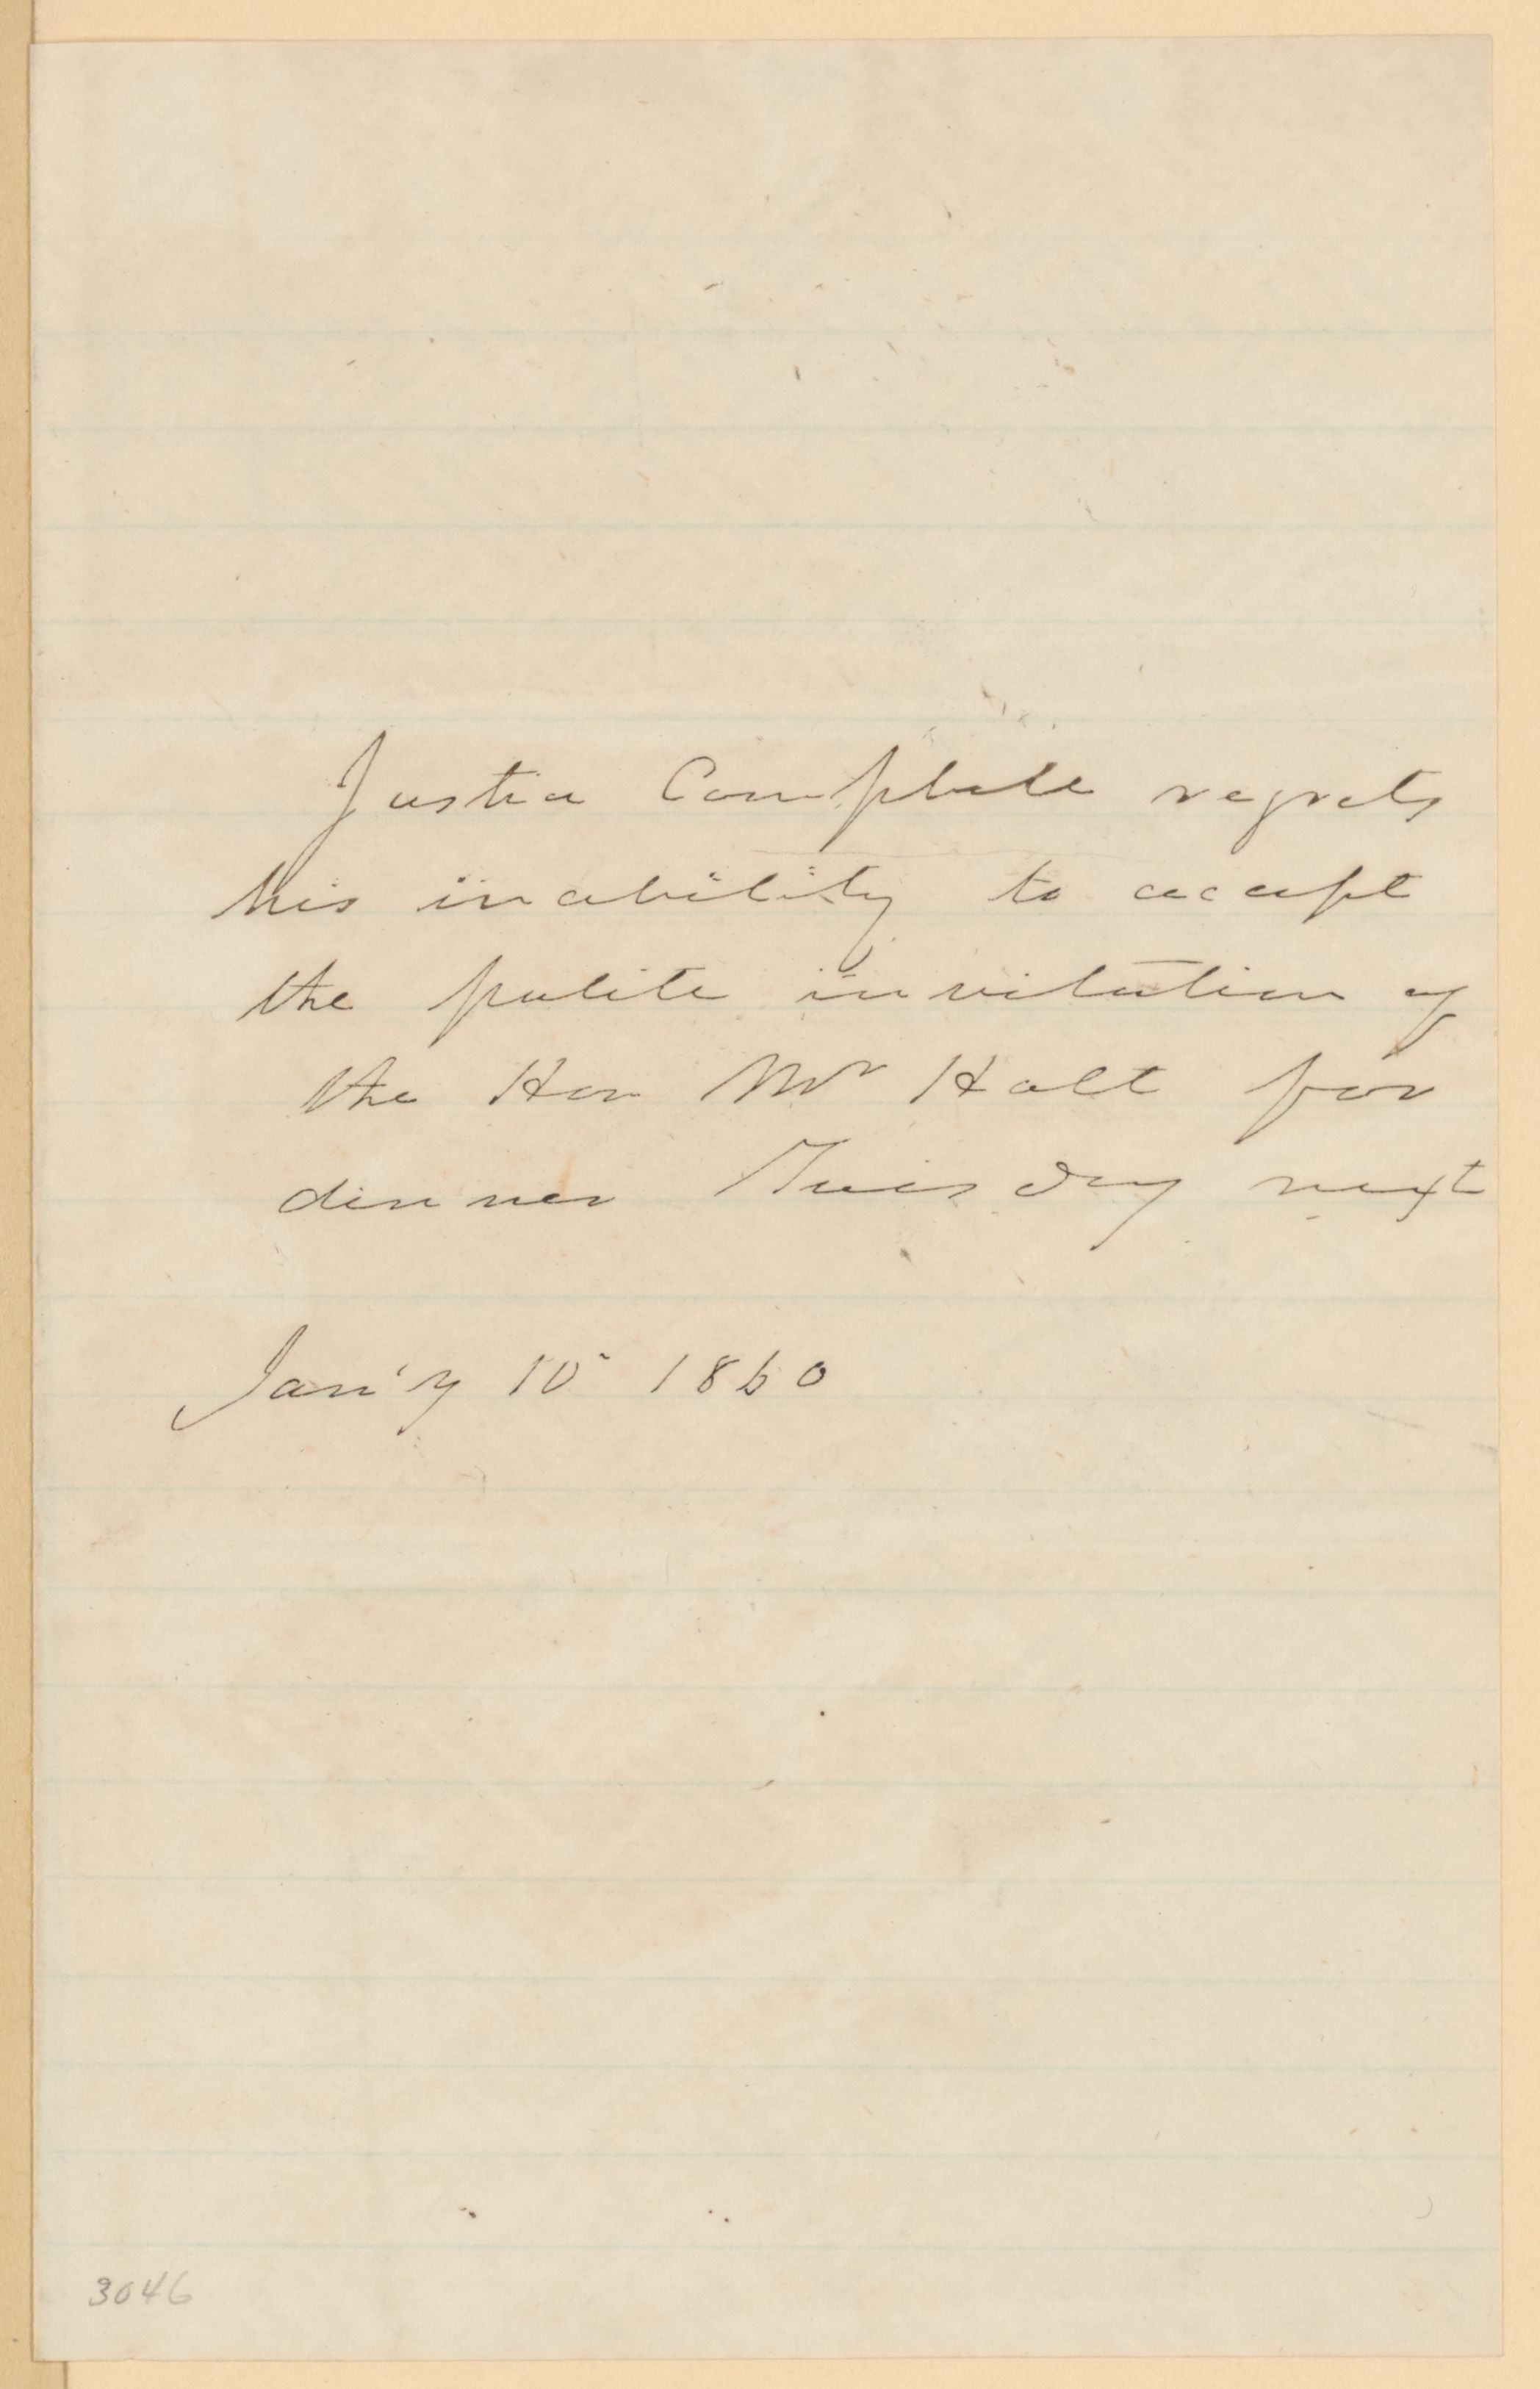 Justice Campbell regrets
his inability to accept
the polite invitation of
the Hon Mr Holt for
dinner Tuesday next
Jan'y 10 1860
3046